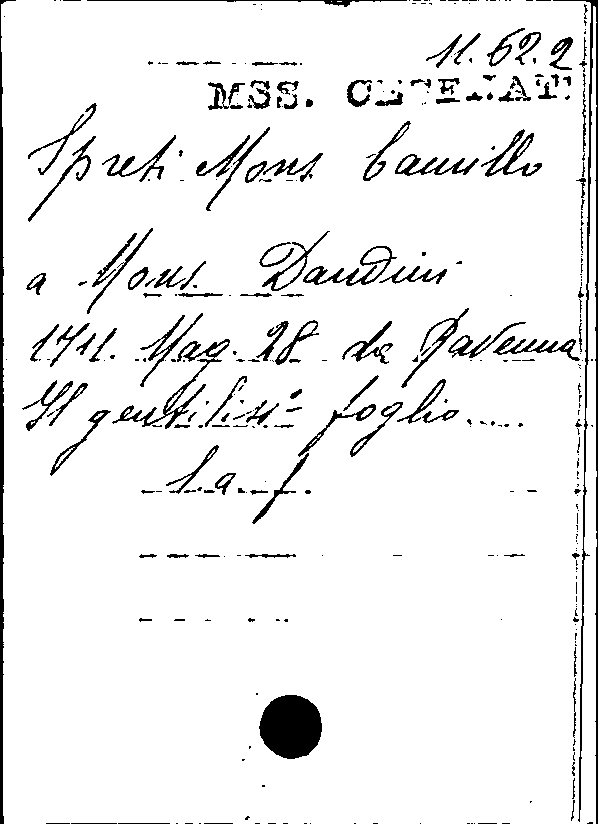 11. 52. 2
MSS. CESENATI
Spreti Mons. Camillo
a Mons. Dandini
1711. Mag. 28 da Ravenna
Il gentilis.o foglio....
l. a. f.